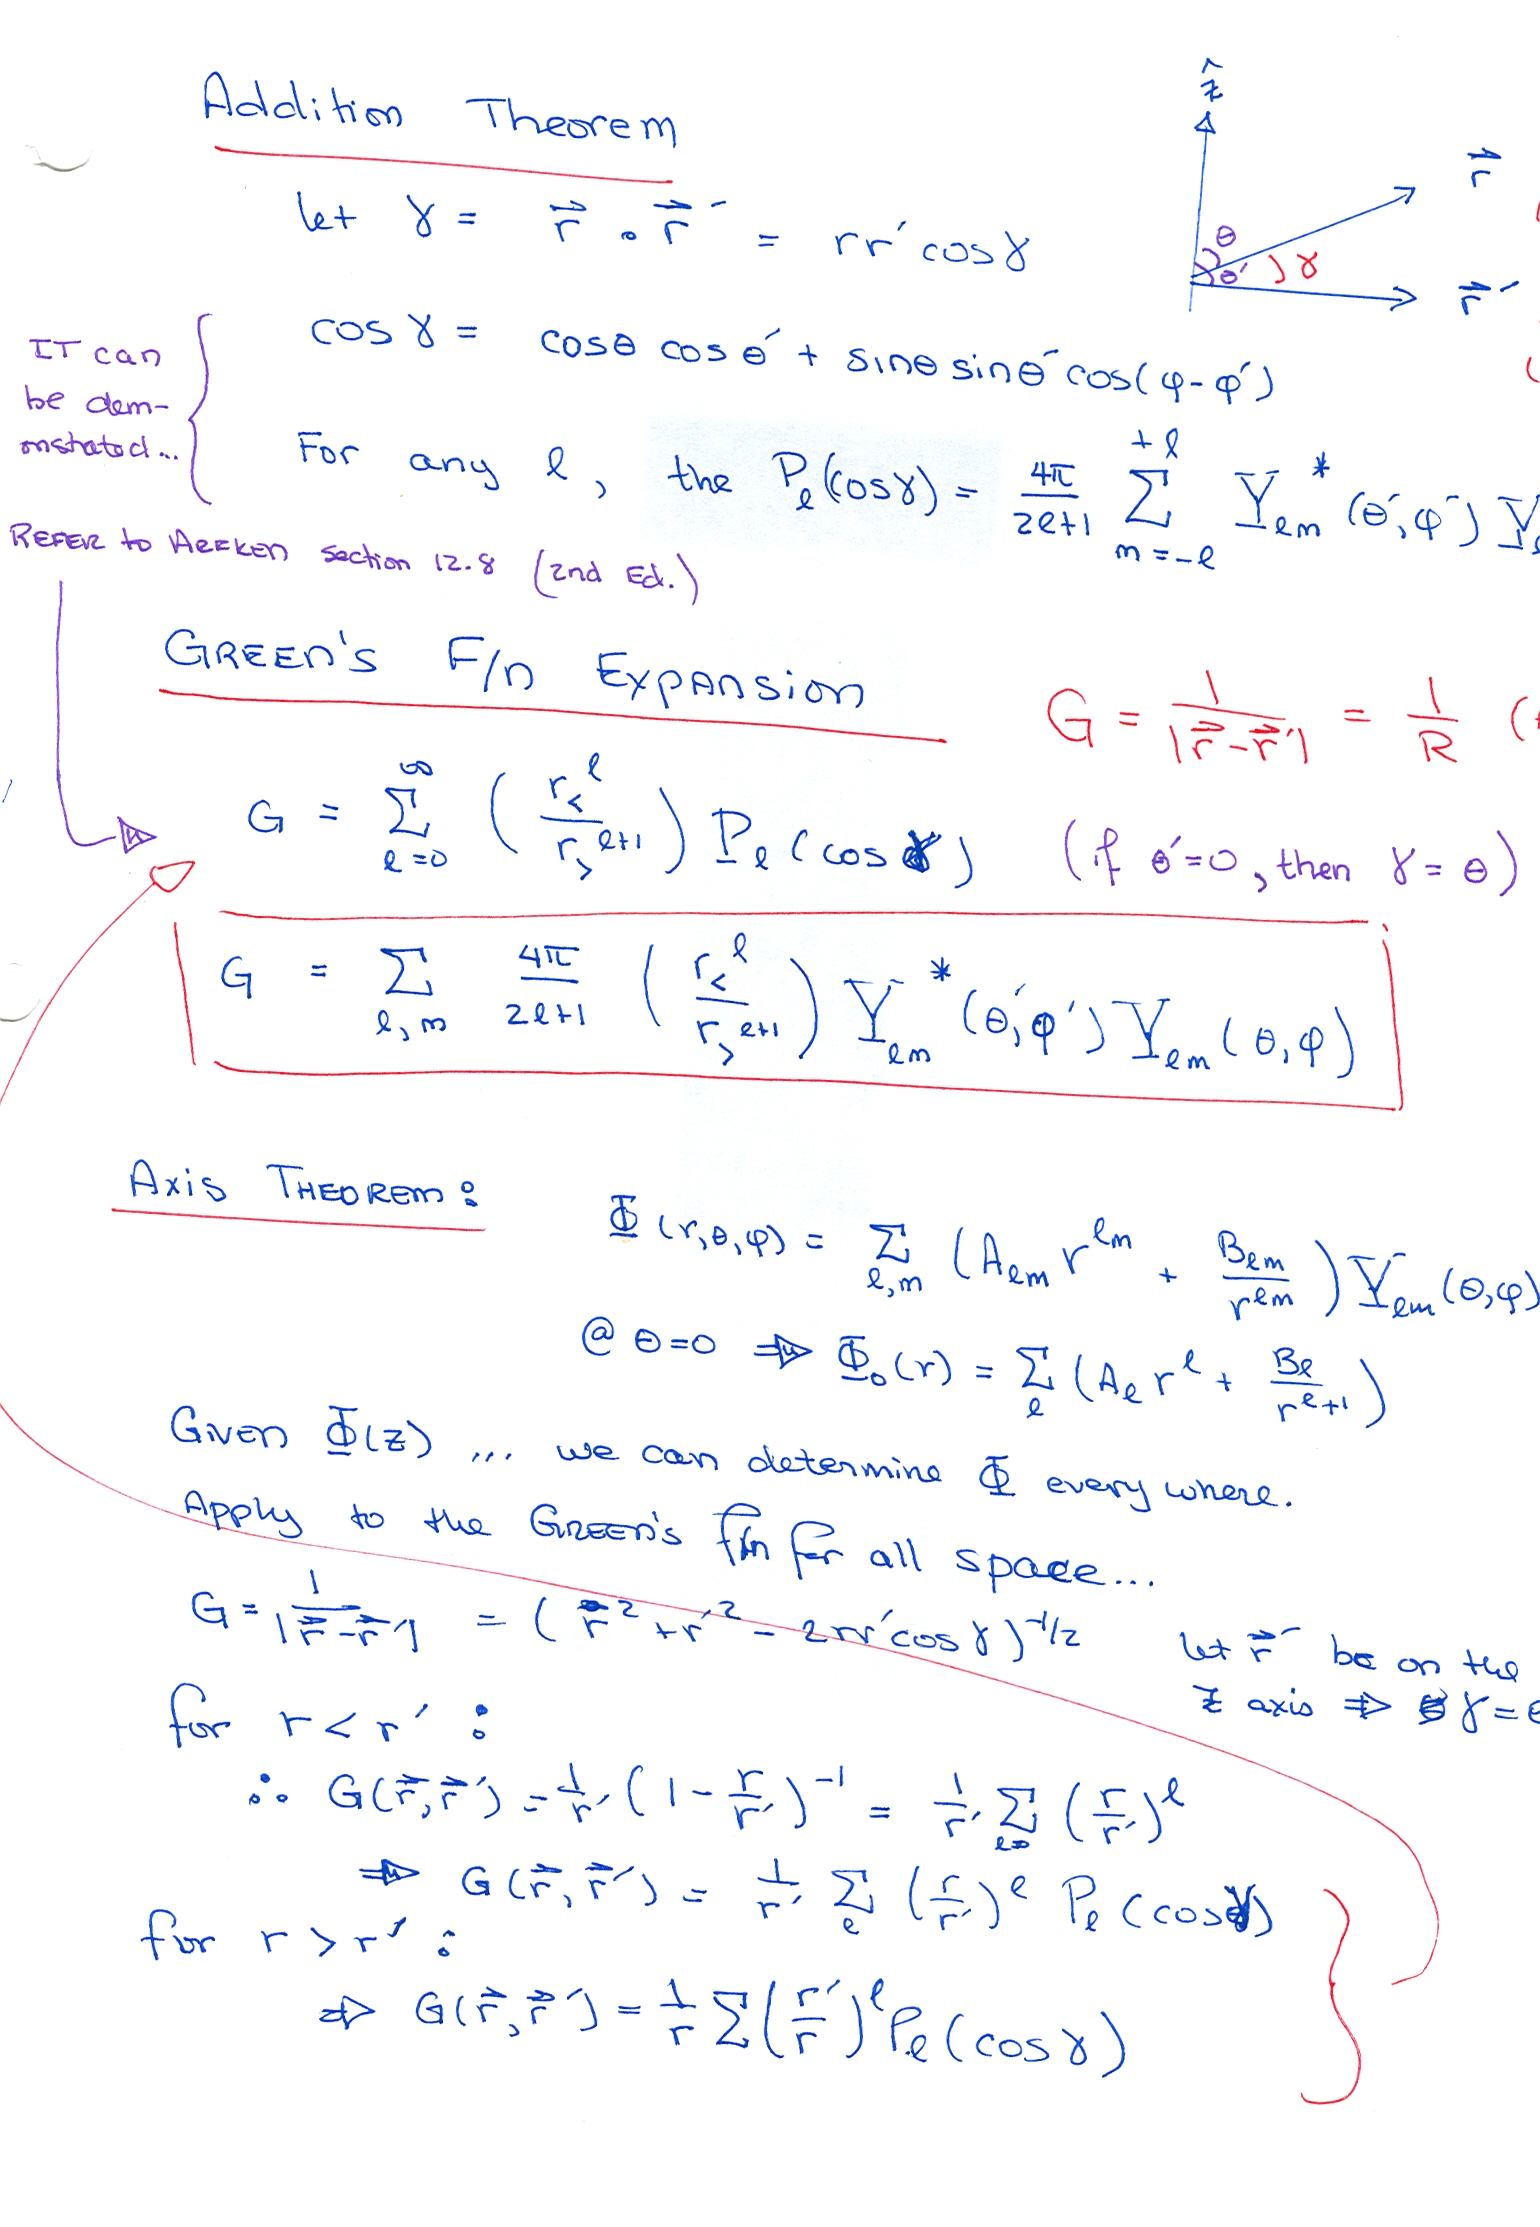 Addition Theorem
ẑ
r⃗
let γ = r⃗ · r⃗′ = rr′ cosγ
θ
θ′ γ
r⃗′
IT can be dem-onstrated...
cos γ = cosθ cosθ′ + sinθ sinθ′ cos(φ-φ′)
For any ℓ, the Pℓ(cosγ) = 4π/(2ℓ+1) Σ_{m=-ℓ}^{+ℓ} Yℓm*(θ′,φ′) Y
REFER to ARFKEN section 12.8 (2nd Ed.)
GREEN'S F/n EXPANSION
G = 1/|r⃗-r⃗′| = 1/R (
G = Σ_{ℓ=0}^{∞} (r<^ℓ / r>^{ℓ+1}) Pℓ(cos γ) (if θ′=0, then γ = θ)
G = Σ_{ℓ,m} 4π/(2ℓ+1) (r<^ℓ / r>^{ℓ+1}) Yℓm*(θ′,φ′) Yℓm(θ,φ)
AXIS THEOREM:
Φ(r,θ,φ) = Σ_{ℓ,m} (Aℓm r^{ℓm} + Bℓm/r^{ℓm}) Yℓm(θ,φ)
@ θ=0 ⇒ Φ₀(r) = Σ_ℓ (Aℓ r^ℓ + Bℓ/r^{ℓ+1})
Given Φ(z) ... we can determine Φ everywhere.
Apply to the GREEN'S f/n for all space...
G = 1/|r⃗-r⃗′| = (r² + r′² - 2rr′cosγ)^{-1/2}
let r⃗′ be on the
z axis ⇒ γ = θ
for r < r′ :
∴ G(r⃗,r⃗′) = 1/r′ (1 - r/r′)^{-1} = 1/r′ Σ_{ℓ=0} (r/r′)^ℓ
⇒ G(r⃗,r⃗′) = 1/r′ Σ_ℓ (r/r′)^ℓ Pℓ(cosγ)
for r > r′ :
⇒ G(r⃗,r⃗′) = 1/r Σ (r′/r)^ℓ Pℓ(cosγ)